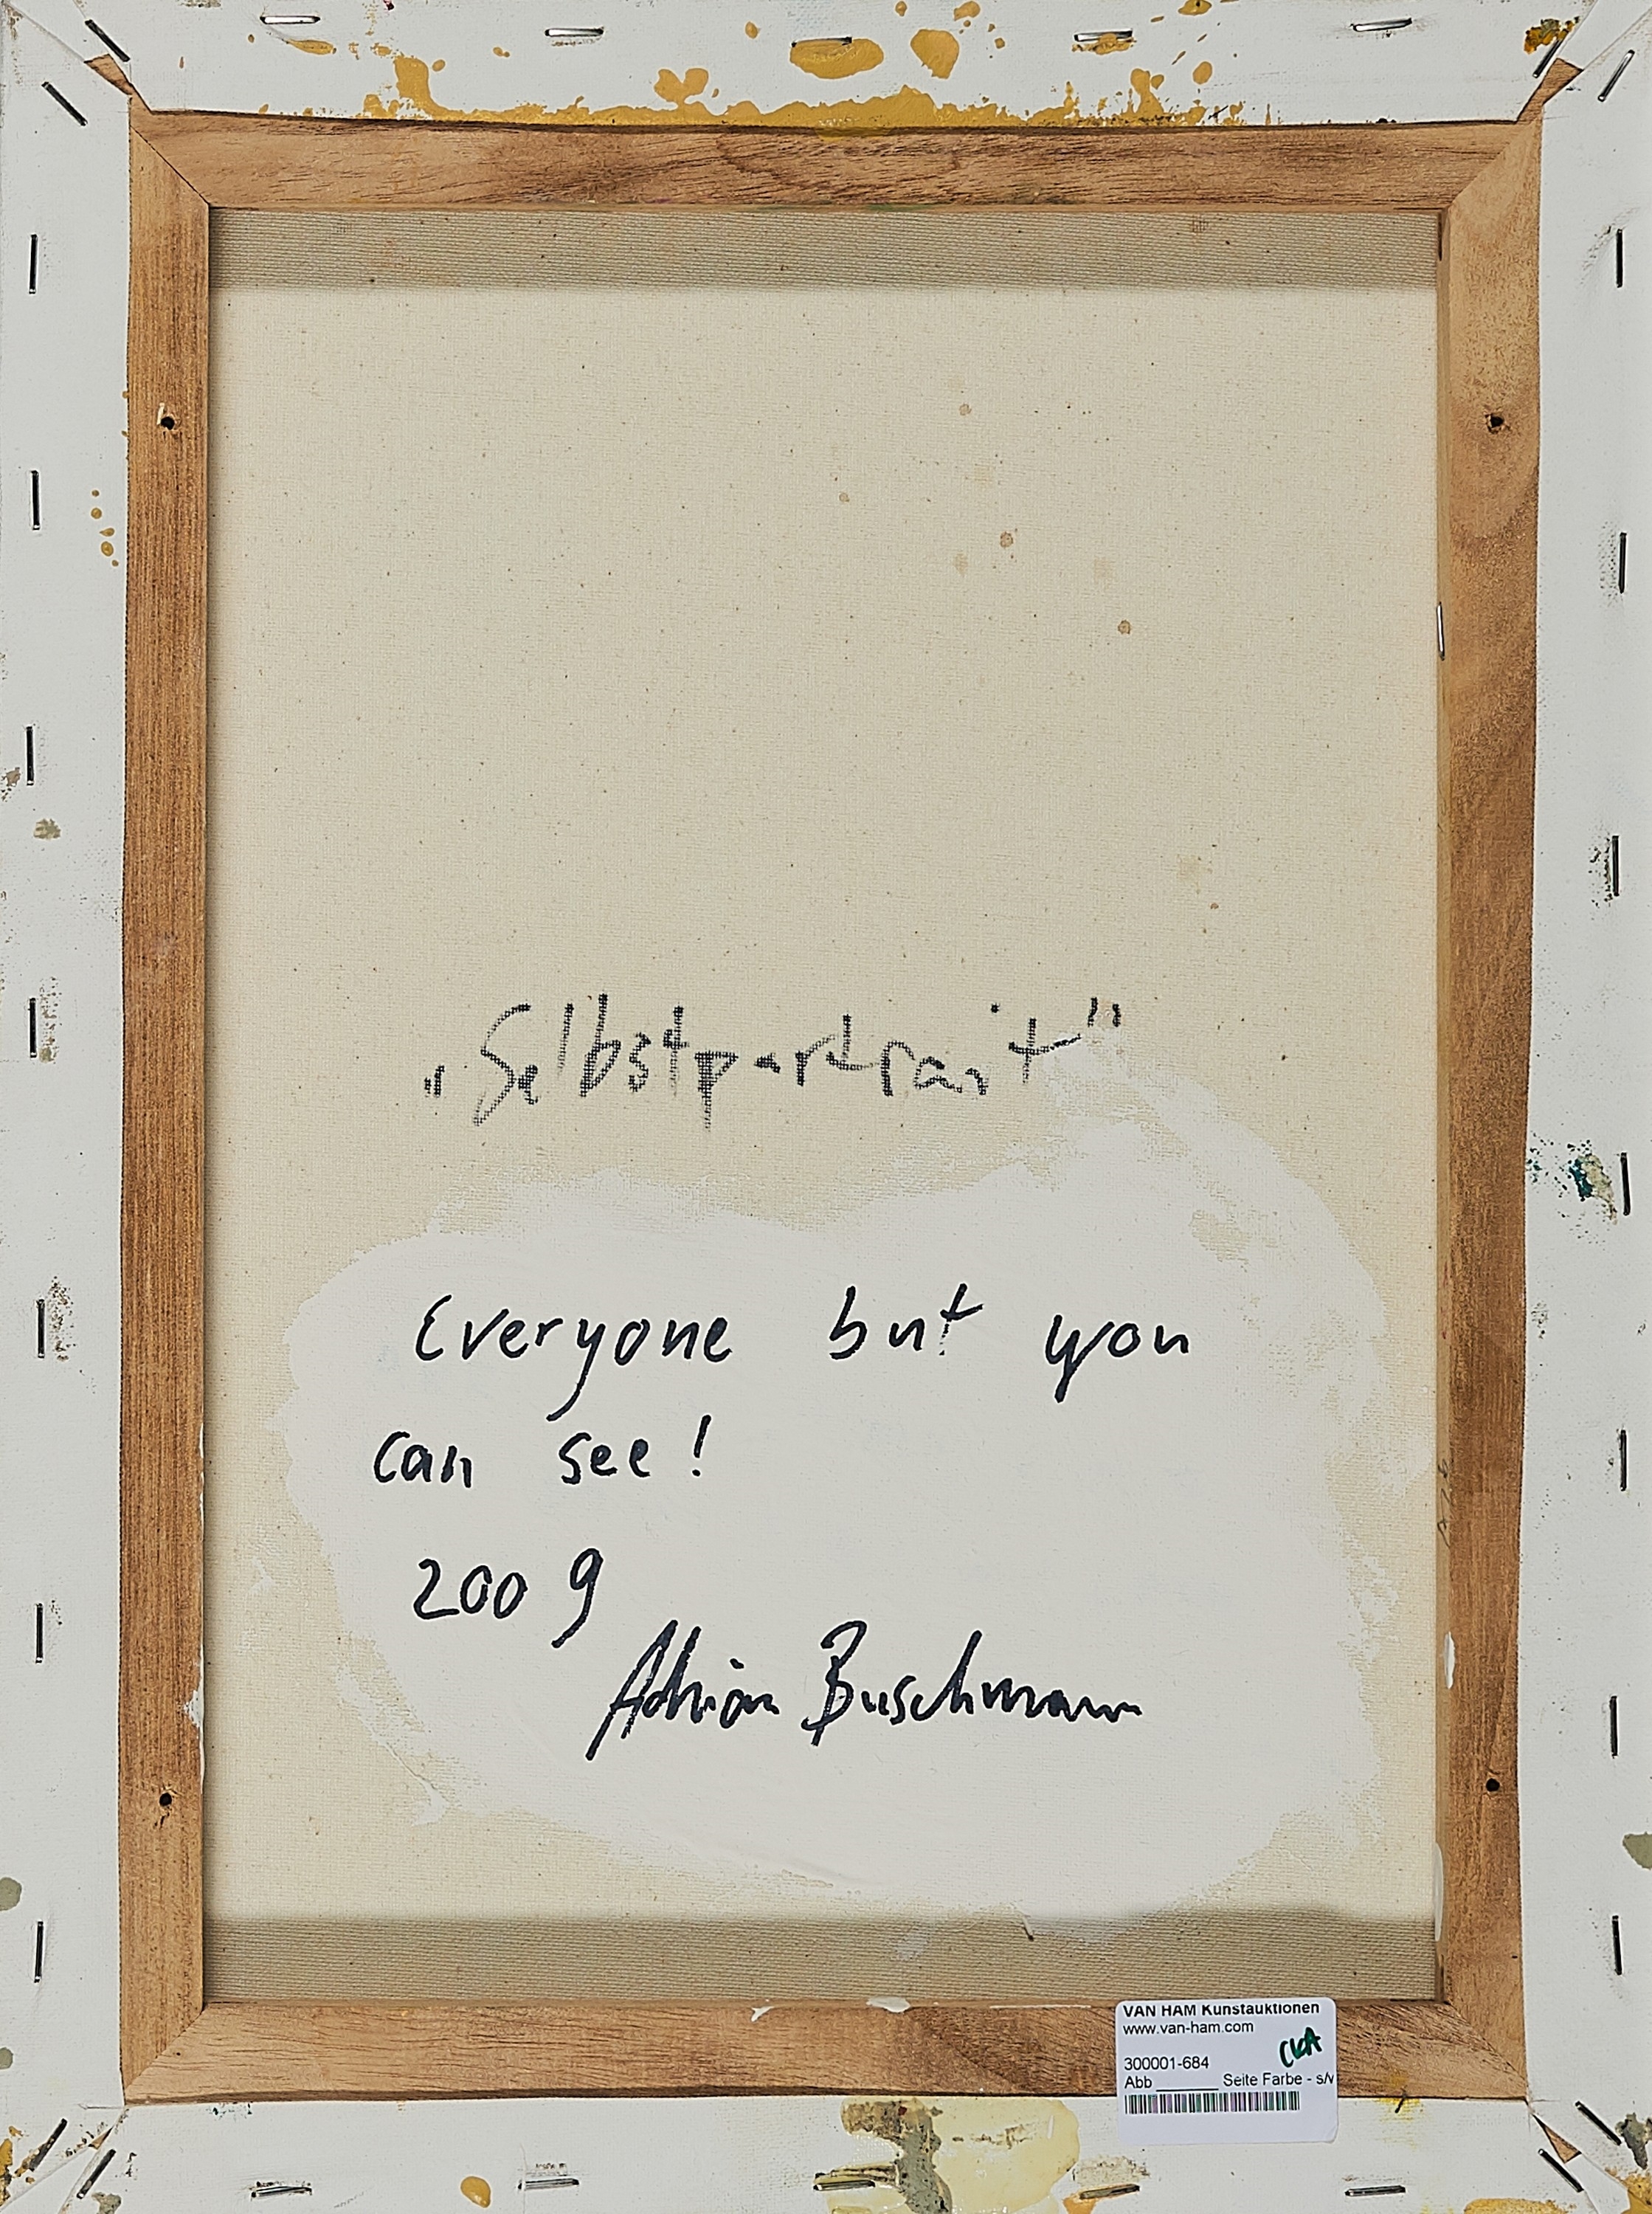 „Selbstportrait"
Everyone but you
can see!
2009
Adrian Buschmann
VAN HAM Kunstauktionen
www.van-ham.com
300001-684
Abb ______ Seite Farbe - s/w